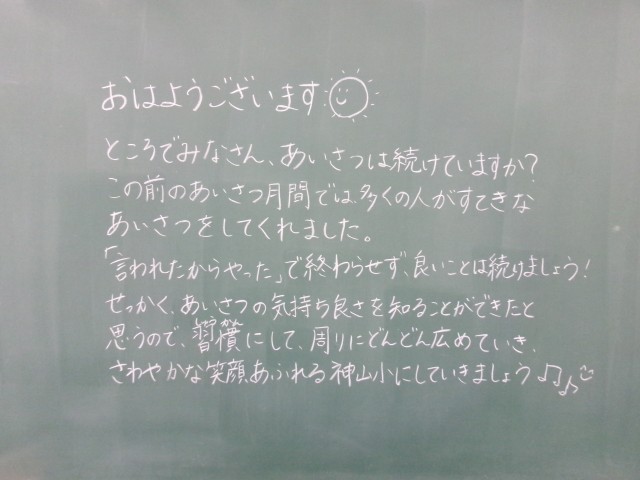 おはようございます
ところでみなさん、あいさつは続けていますか?
この前のあいさつ月間では、多くの人がすてきな
あいさつをしてくれました。
「言われたからやった」で終わらせず、良いことは続けましょう!
せっかく、あいさつの気持ち良さを知ることができたと
思うので、習慣にして、周りにどんどん広めていき、
さわやかな笑顔あふれる神山小にしていきましょう♪♫♪